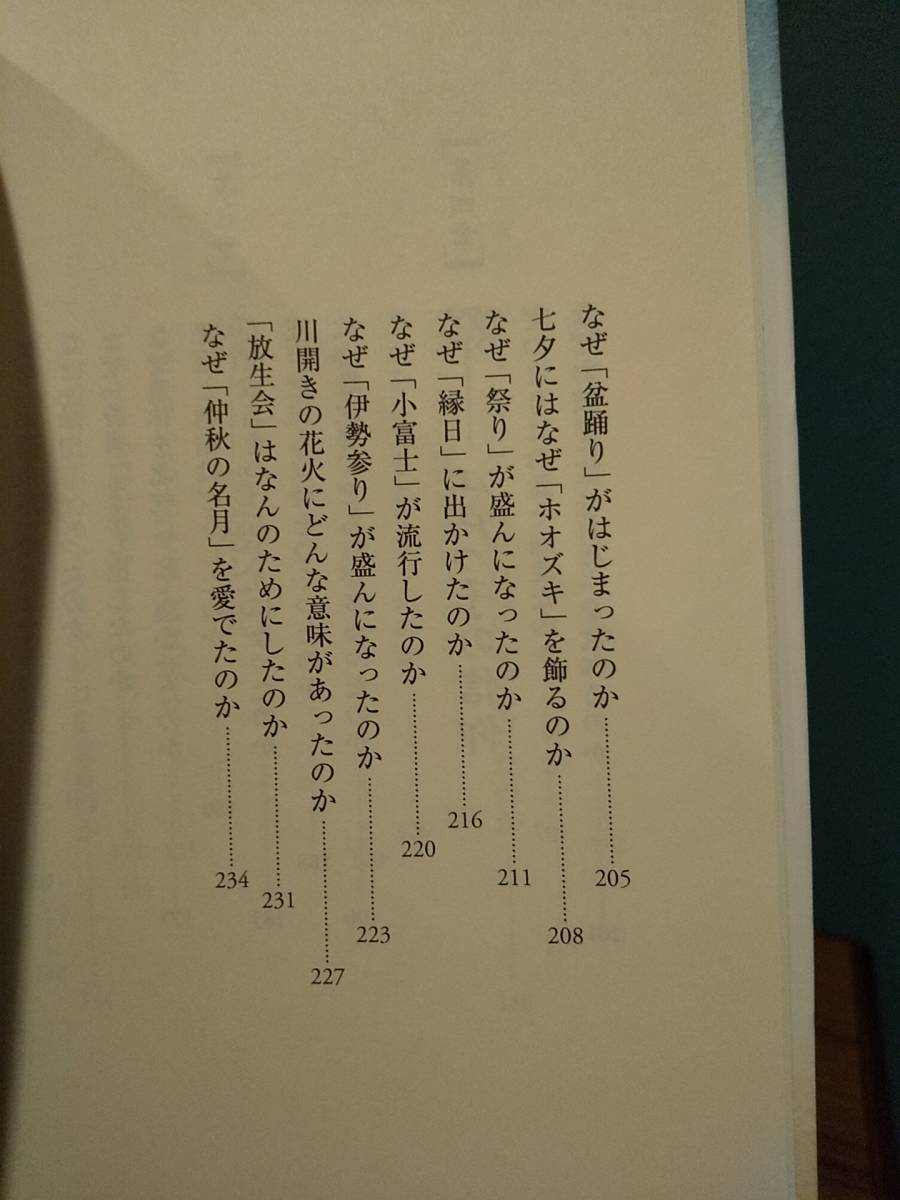 なぜ「盆踊り」がはじまったのか……………205
七夕にはなぜ「ホオズキ」を飾るのか……………208
なぜ「祭り」が盛んになったのか……………211
なぜ「縁日」に出かけたのか……………216
なぜ「小富士」が流行したのか……………220
なぜ「伊勢参り」が盛んになったのか……………223
川開きの花火にどんな意味があったのか……………227
「放生会」はなんのためにしたのか……………231
なぜ「仲秋の名月」を愛でたのか……………234